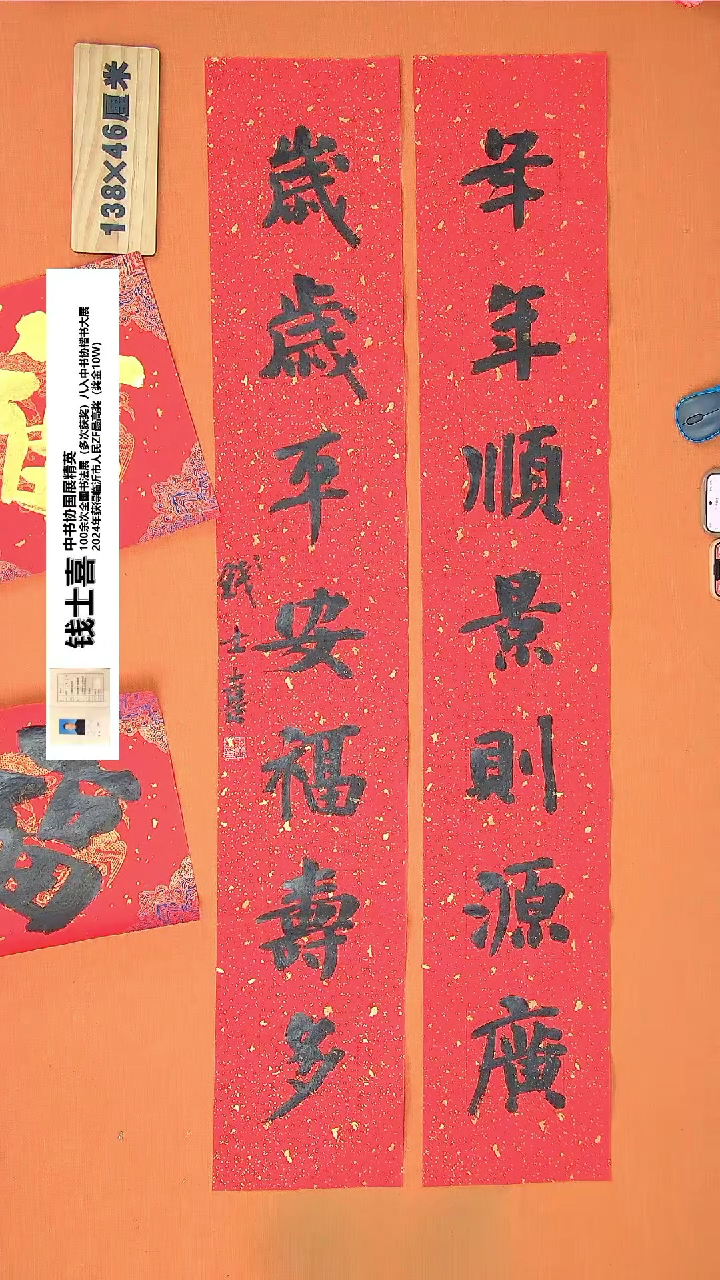 年年順景則源廣
歲歲平安福壽多
钱士喜
138×46厘米
钱士喜
中书协国展精英
100余次全国书法展（多次获奖）八入中书协楷书大展
2024年获得临沂市人民ZF最高奖（奖金10W）